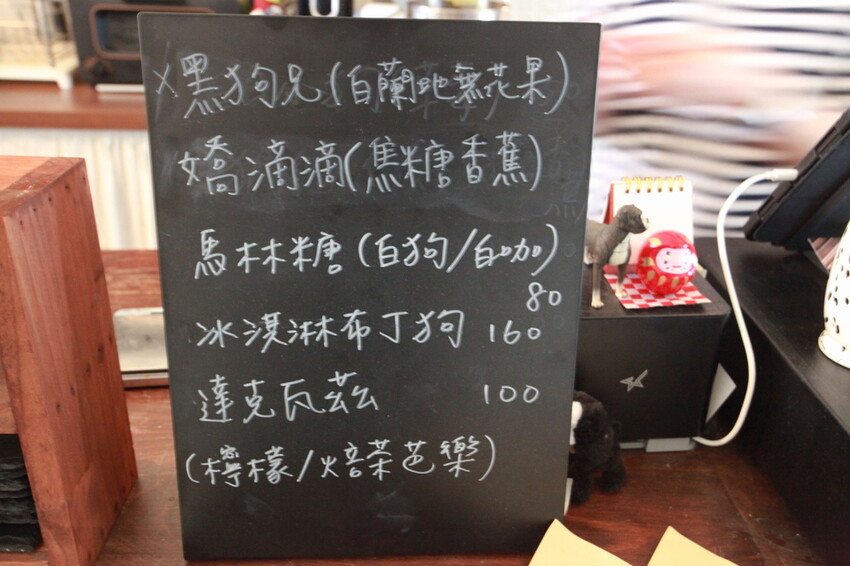 x黑狗兄(白蘭地無花果)
嬌滴滴(焦糖香蕉)
馬林糖(白狗/白咖)
80
冰淇淋布丁狗 160
達克瓦茲 100
(檸檬/焙茶芭樂)